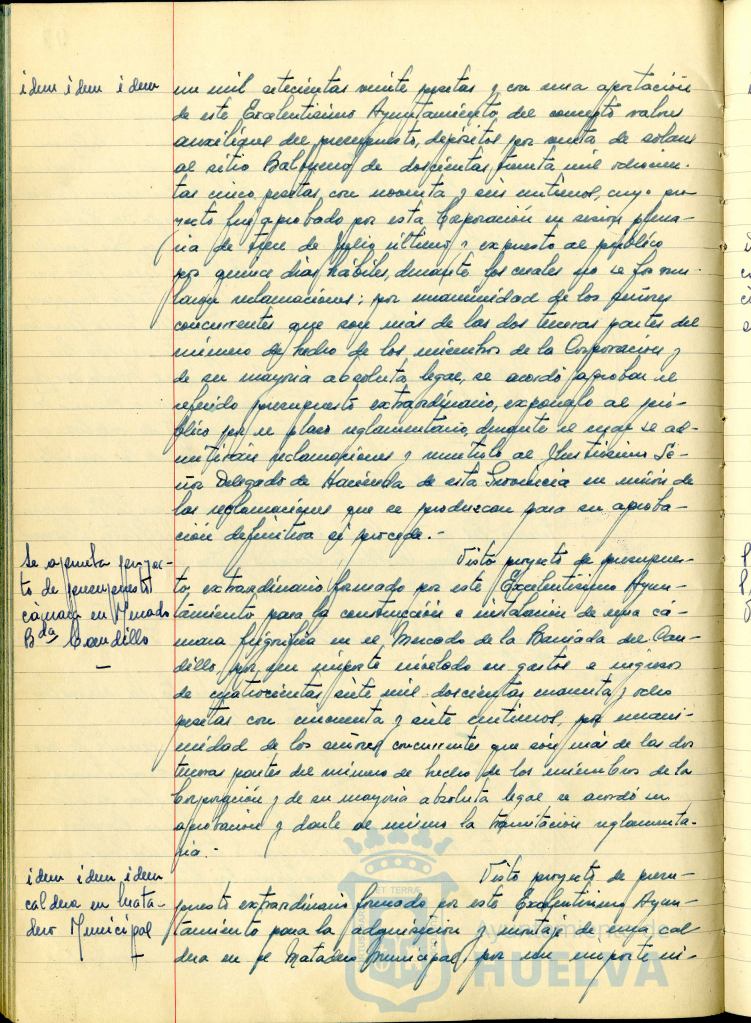 idem idem idem
un mil setecientas veinte pesetas y con una aportación
de este Excelentisimo Ayuntamiento, del concepto valores
auxiliares del presupuesto, depósitos por venta de solares
al sitio Balbueno de doscientas treinta mil ochocien-
tas cinco pesetas con noventa y seis centimos, cuyo pro-
yecto fue aprobado por esta Corporación en sesión plena-
ria de trece de Julio último y expuesto al público
por quince dias hábiles, durante los cuales no se formu-
laron reclamaciones; por unanimidad de los señores
concurrentes que son más de las dos terceras partes del
número de hecho de los miembros de la Corporación y
de su mayoria absoluta legal, se acordó aprobar el
referido presupuesto extraordinario, exponerlo al pú-
blico por el plazo reglamentario, durante el cual se ad-
mitirán reclamaciones y remitirlo al Ilustrisimo Se-
ñor Delegado de Hacienda de esta Provincia en unión de
las reclamaciones que se produzcan para su aproba-
ción definitiva si procede.-
Se aprueba proyec-
to de presupuesto
cámara en Mercado
Bda Caudillo
Visto proyecto de presupues-
to extraordinario formado por este Excelentisimo Ayun-
tamiento para la construcción e instalación de una cá-
mara frigorifica en el Mercado de la Barriada del Cau-
dillo, por un importe nivelado en gastos e ingresos
de cuatrocientas siete mil doscientas cuarenta y ocho
pesetas con cincuenta y siete centimos, por unani-
midad de los señores concurrentes que són más de las dos
terceras partes del número de hecho de los miembros de la
Corporación y de su mayoria absoluta legal se acordó su
aprobación y darle al mismo la tramitación reglamenta-
ria.-
idem idem idem
caldera en Mata-
dero Municipal
Visto proyecto de presu-
puesto extraordinario formado por este Excelentisimo Ayun-
tamiento para la adquisición y montaje de una cal
dera en el Matadero Municipal, por un importe ni-
Ayuntamiento de
HUELVA